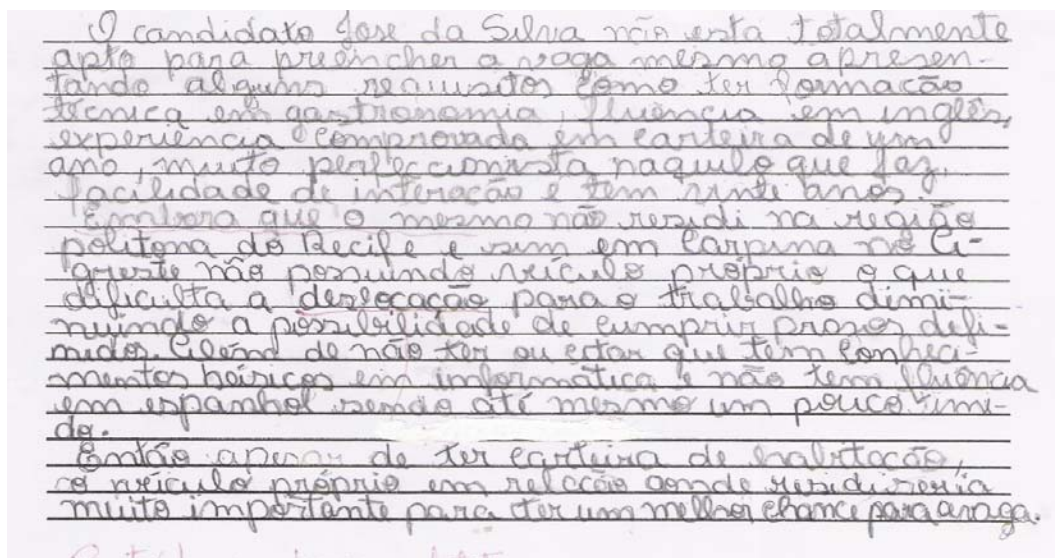 O candidato Jose da Silva não está totalmente
apto para preencher a vaga mesmo apresen-
tando alguns requisitos como ter formação
técnica em gastronomia, fluência em inglês,
experiência comprovada em carteira de um
ano, muito perfeccionista naquilo que faz,
facilidade de interação e tem vinte anos.
Embora que o mesmo não residi na região
politona do Recife e sim em Carpina no A-
greste não possuindo veículo próprio o que
dificulta a deslocação para o trabalho dimi-
nuindo a possibilidade de cumprir prazos defi-
nidos. Além de não ter ou estar que tem conheci-
mentos básicos em informática e não tem fluência
em espanhol sendo até mesmo um pouco timi-
do.
Então apesar de ter carteira de habitação,
o veículo próprio em relação aonde residi seria
muito importante para ter um melhor chance para a vaga.